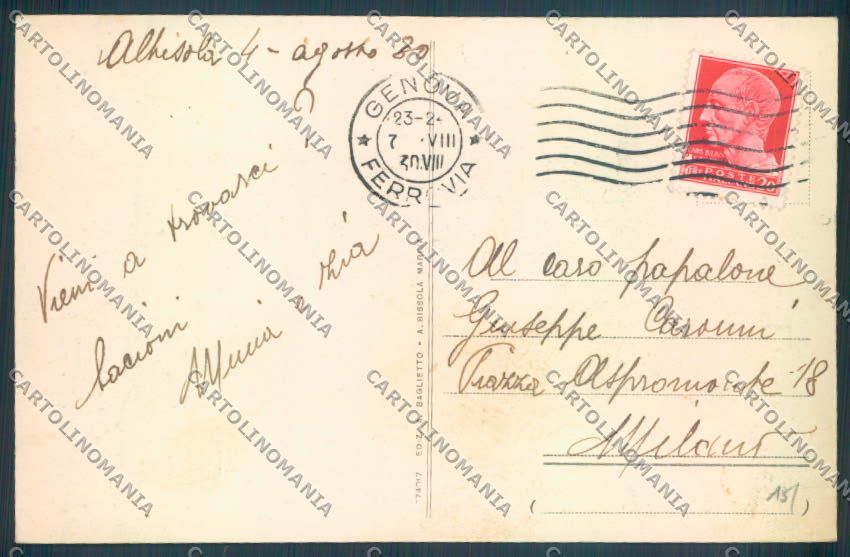 Albisola 4 - agosto 30
Vieni a trovarci?
bacioni
Mimia e zia
GENOVA
23-24
7 VIII
30.VIII
FERROVIA
POSTE
Al caro papalone
Giuseppe
Piazza Aspromonte 18
Milano
EDIZ. BAGLIETTO - ALBISSOLA MAR
15/
CARTOLINOMANIA